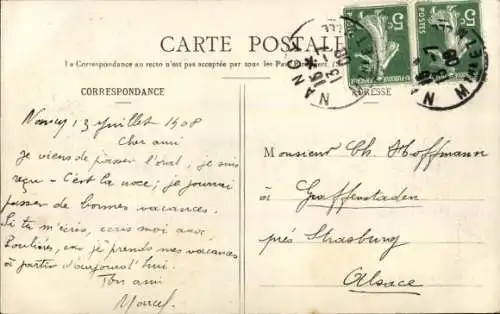 CARTE POSTALE
La Correspondance au recto n'est pas acceptée par tous les Pays Étrangers.
CORRESPONDANCE
ADRESSE
Nancy 13 Juillet 1908
Cher ami
Je viens de passer l'oral; je suis
reçu - C'est la noce; je pourrai
passer de bonnes vacances.
Si tu m'écris, écris moi aux
car je prends mes vacances
à partir d'aujourd'hui.
Ton ami
Marcel
Monsieur Ch. Hoffmann
à Graffenstaden
prés Strasburg
Alsace
5c
POSTES
5c
NANCY